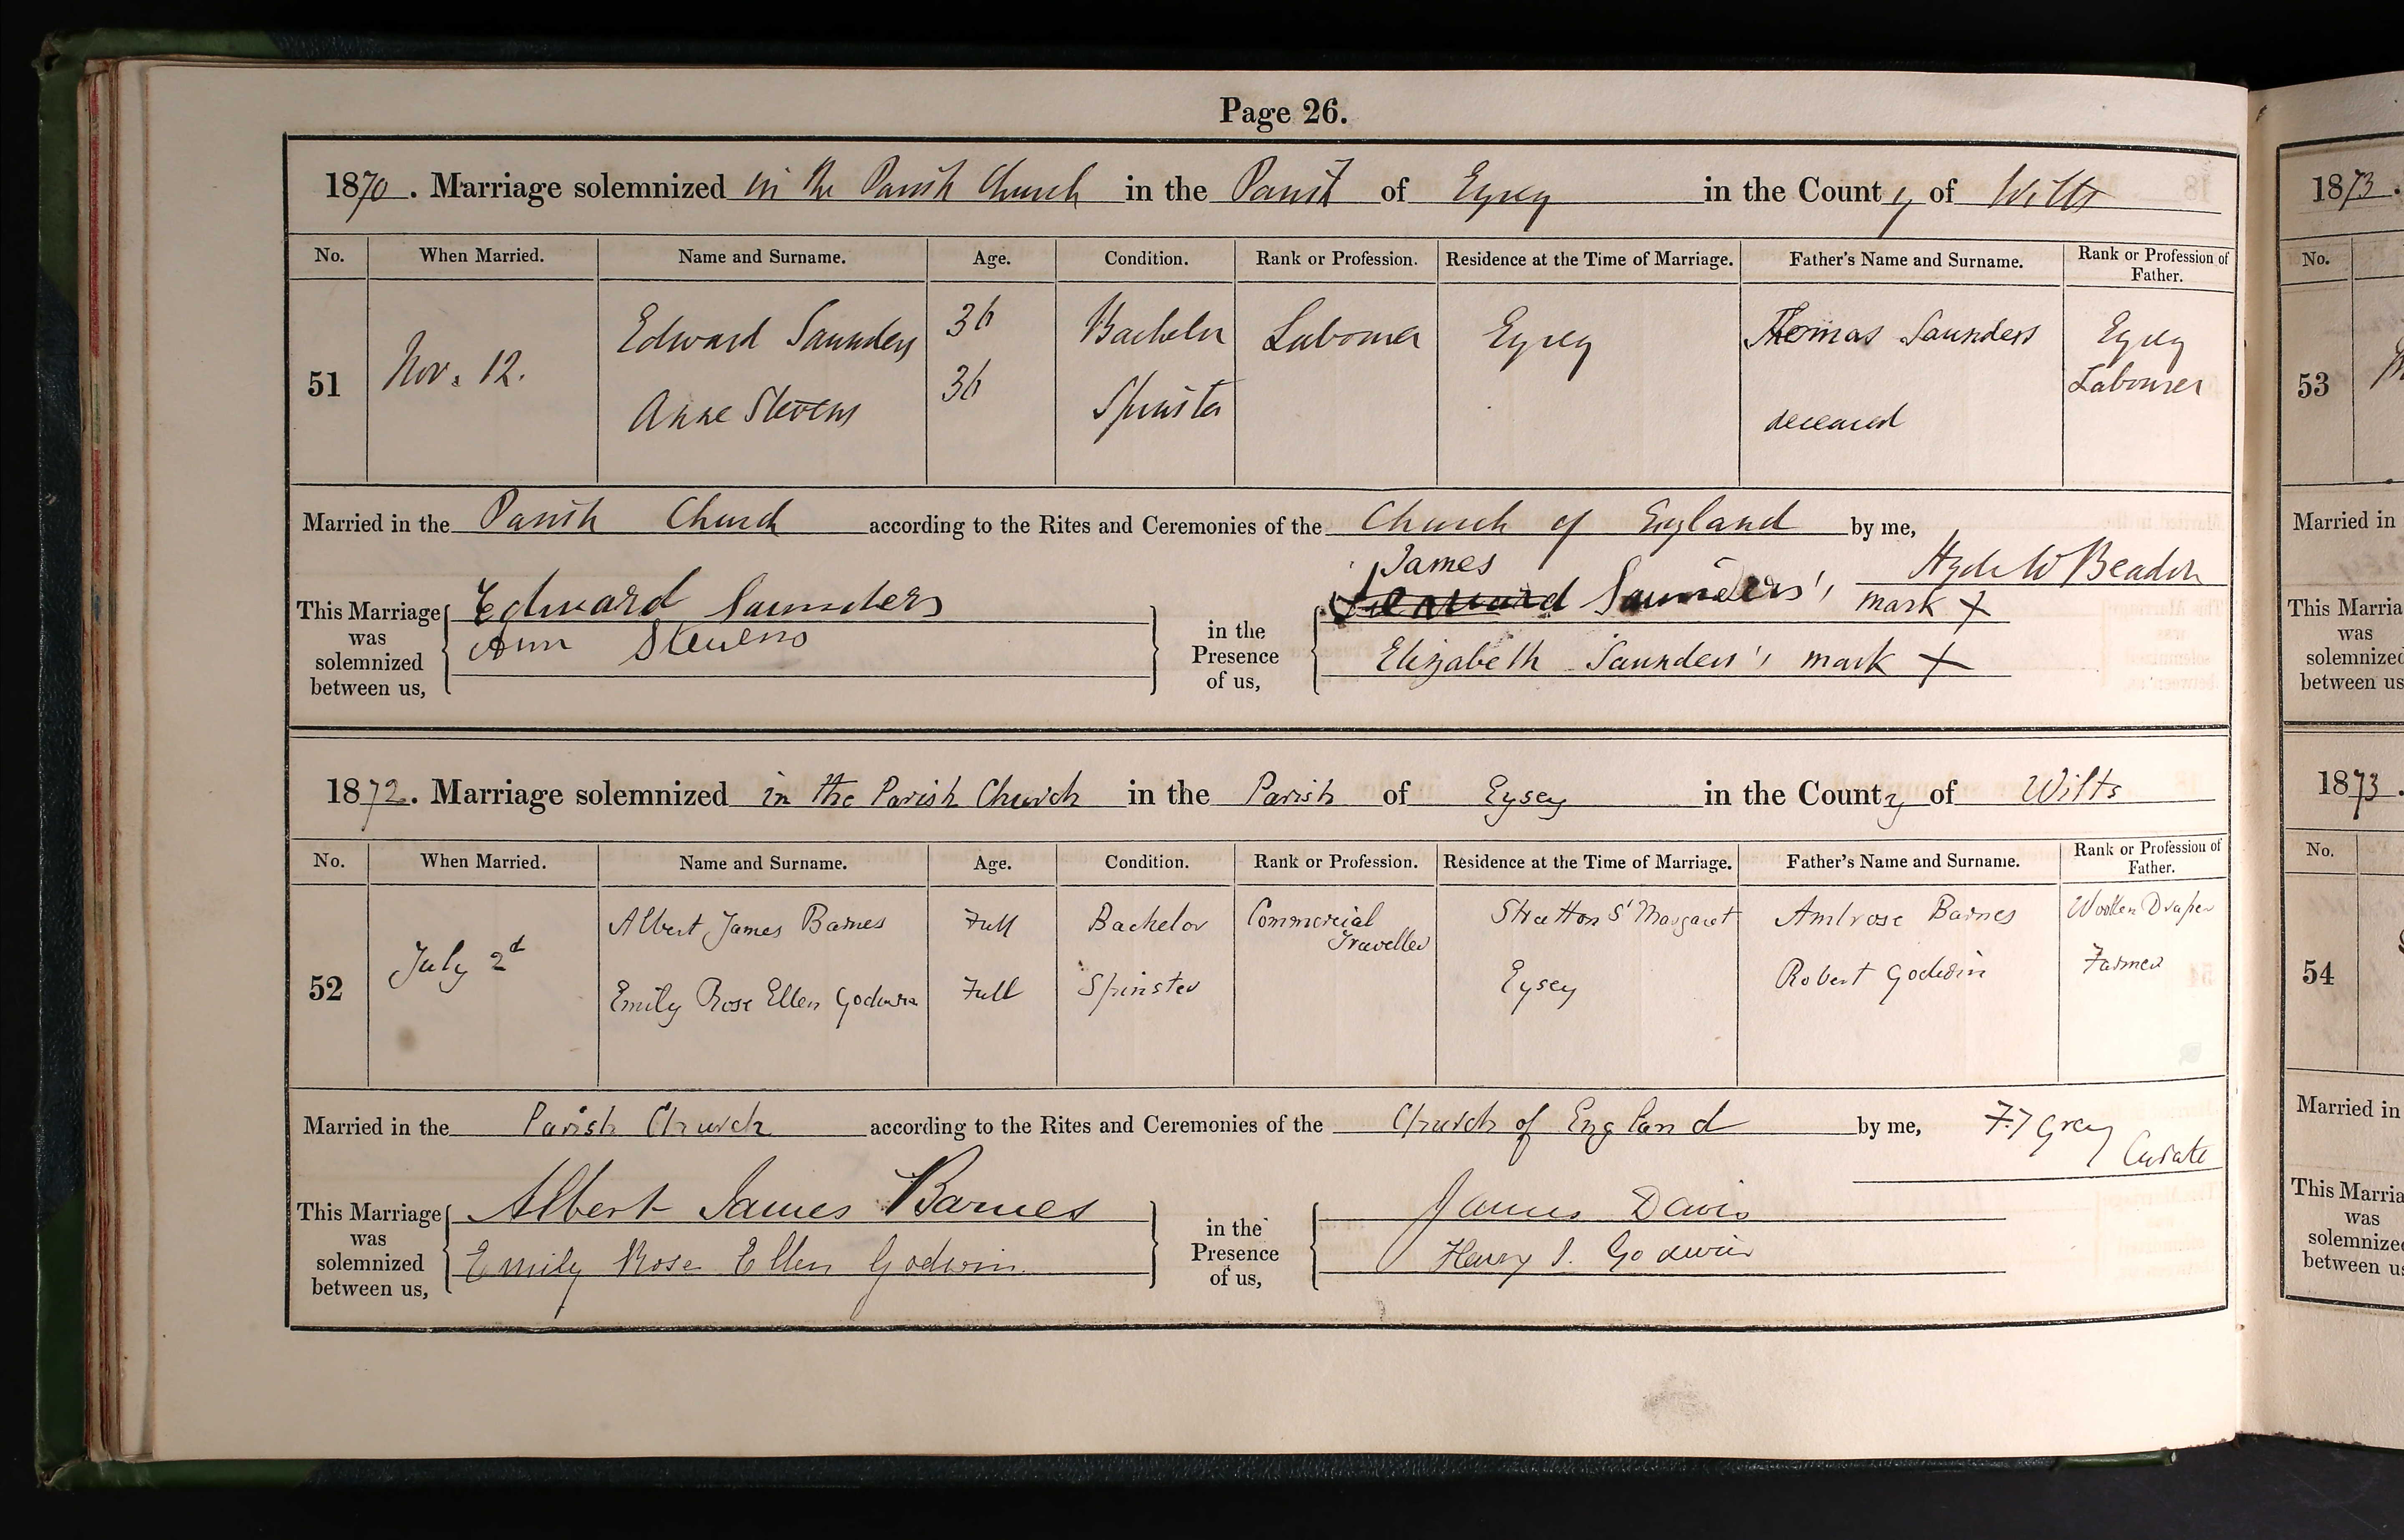 Page 26.
1870. Marriage solemnized in the Parish Church in the Parish of Eysey in the County of Wilts
No. When Married. Name and Surname. Age. Condition. Rank or Profession. Residence at the Time of Marriage. Father's Name and Surname. Rank or Profession of Father.
51 Nov. 12. Edward Saunders 36 Bachelor Labourer Eysey Thomas Saunders Eysey Labourer
Anne Stevens 36 Spinster deceased
Married in the Parish Church according to the Rites and Ceremonies of the Church of England by me,
Hyde W Beadon
This Marriage was solemnized between us, Edward Saunders
Ann Stevens
in the Presence of us, James Saunders' mark X
Elizabeth Saunders's mark X
1872. Marriage solemnized in the Parish Church in the Parish of Eysey in the County of Wilts
No. When Married. Name and Surname. Age. Condition. Rank or Profession. Residence at the Time of Marriage. Father's Name and Surname. Rank or Profession of Father.
52 July 2d Albert James Barnes Full Bachelor Commercial Traveller Stratton St Margaret Ambrose Barnes Woollen Draper
Emily Rose Ellen Godwin Full Spinster Eysey Robert Godwin Farmer
Married in the Parish Church according to the Rites and Ceremonies of the Church of England by me, Gray
Curate
This Marriage was solemnized between us, Albert James Barnes
Emily Rose Ellen Godwin
in the Presence of us, James Davis
Henry J. Godwin
1873.
No.
53
Married in
This Marria
was
solemnized
between us
1873.
No.
54
Married in
This Marria
was
solemnize
between u